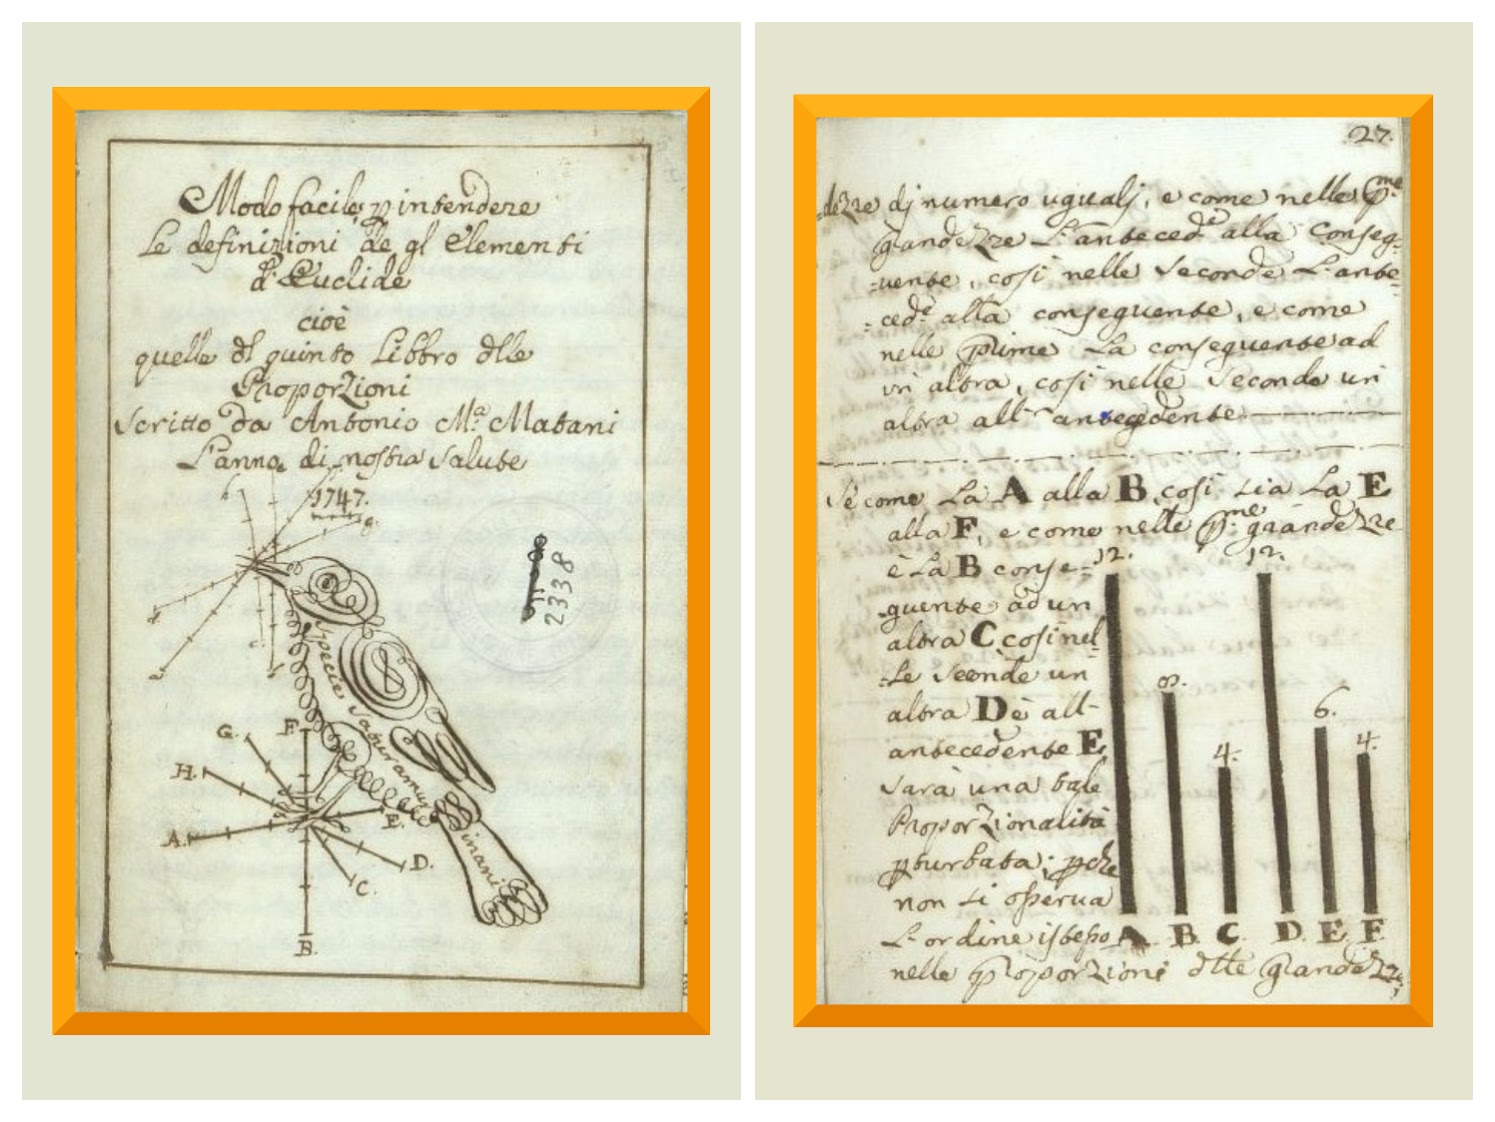 Modo facile p intendere
Le definizioni de gl Elementi
d'Euclide
cioè
quelle dl quinto Libbro dlle
Proporzioni
scritto da Antonio M.ª Matani
L'anno di nostra salute
1747.
g.
2338
Specie saturamur
inani
G.
F.
H.
A.
E.
D.
C.
B.
27.
=dezze dj numero ugualj, e come nelle p.me
grandezze L'anteced.te alla conseg=
=uente, cosi nelle seconde L'ante=
=ced.te alla conseguente, e come
nelle prime La conseguente ad
un altra, cosi nelle seconde un
altra all' antecedente
Se come La A alla B cosi sia La E
alla F, e come nelle p.me grandezze
è La B conse=
guente ad un
altra C cosi nel
=Le seconde un
altra D è all-
antecedente E,
sarà una tale
Proporzionalità
pturbata; pche
non si osserua
L'ordine istesso
nelle proporzioni dlle grandezze,
12.
8.
4.
12.
6.
4.
A. B. C. D. E. F.